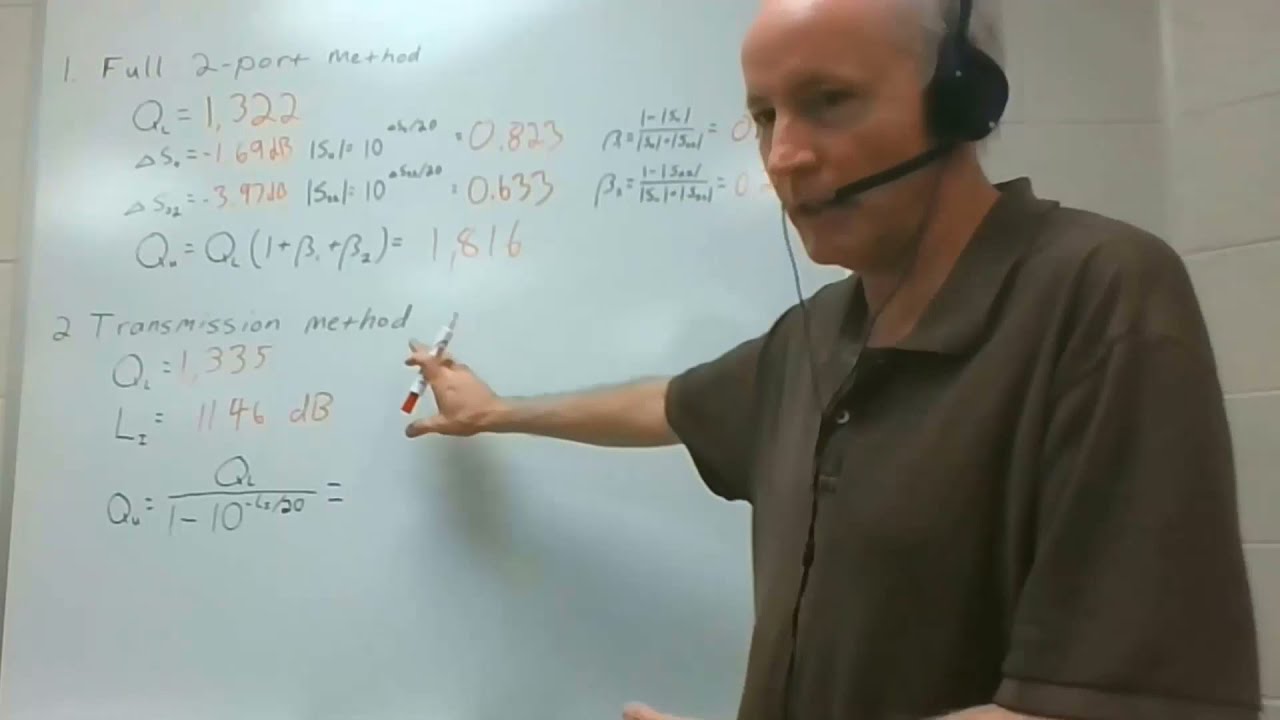 1. Full 2-port method
Q_L = 1,322
ΔS₁₁ = -1.69dB |S₁₁| = 10^(ΔS₁₁/20) = 0.823 β₁ = (1-|S₁₁|)/(|S₁₁|+|S₂₂|) = 0.
ΔS₂₂ = -3.97dB |S₂₂| = 10^(ΔS₂₂/20) = 0.633 β₂ = (1-|S₂₂|)/(|S₁₁|+|S₂₂|) = 0.
Q_u = Q_L (1+β₁+β₂) = 1,816
2 Transmission method
Q_L = 1,335
L_I = 11.46 dB
Q_u = Q_L/(1-10^(-L_I/20)) =